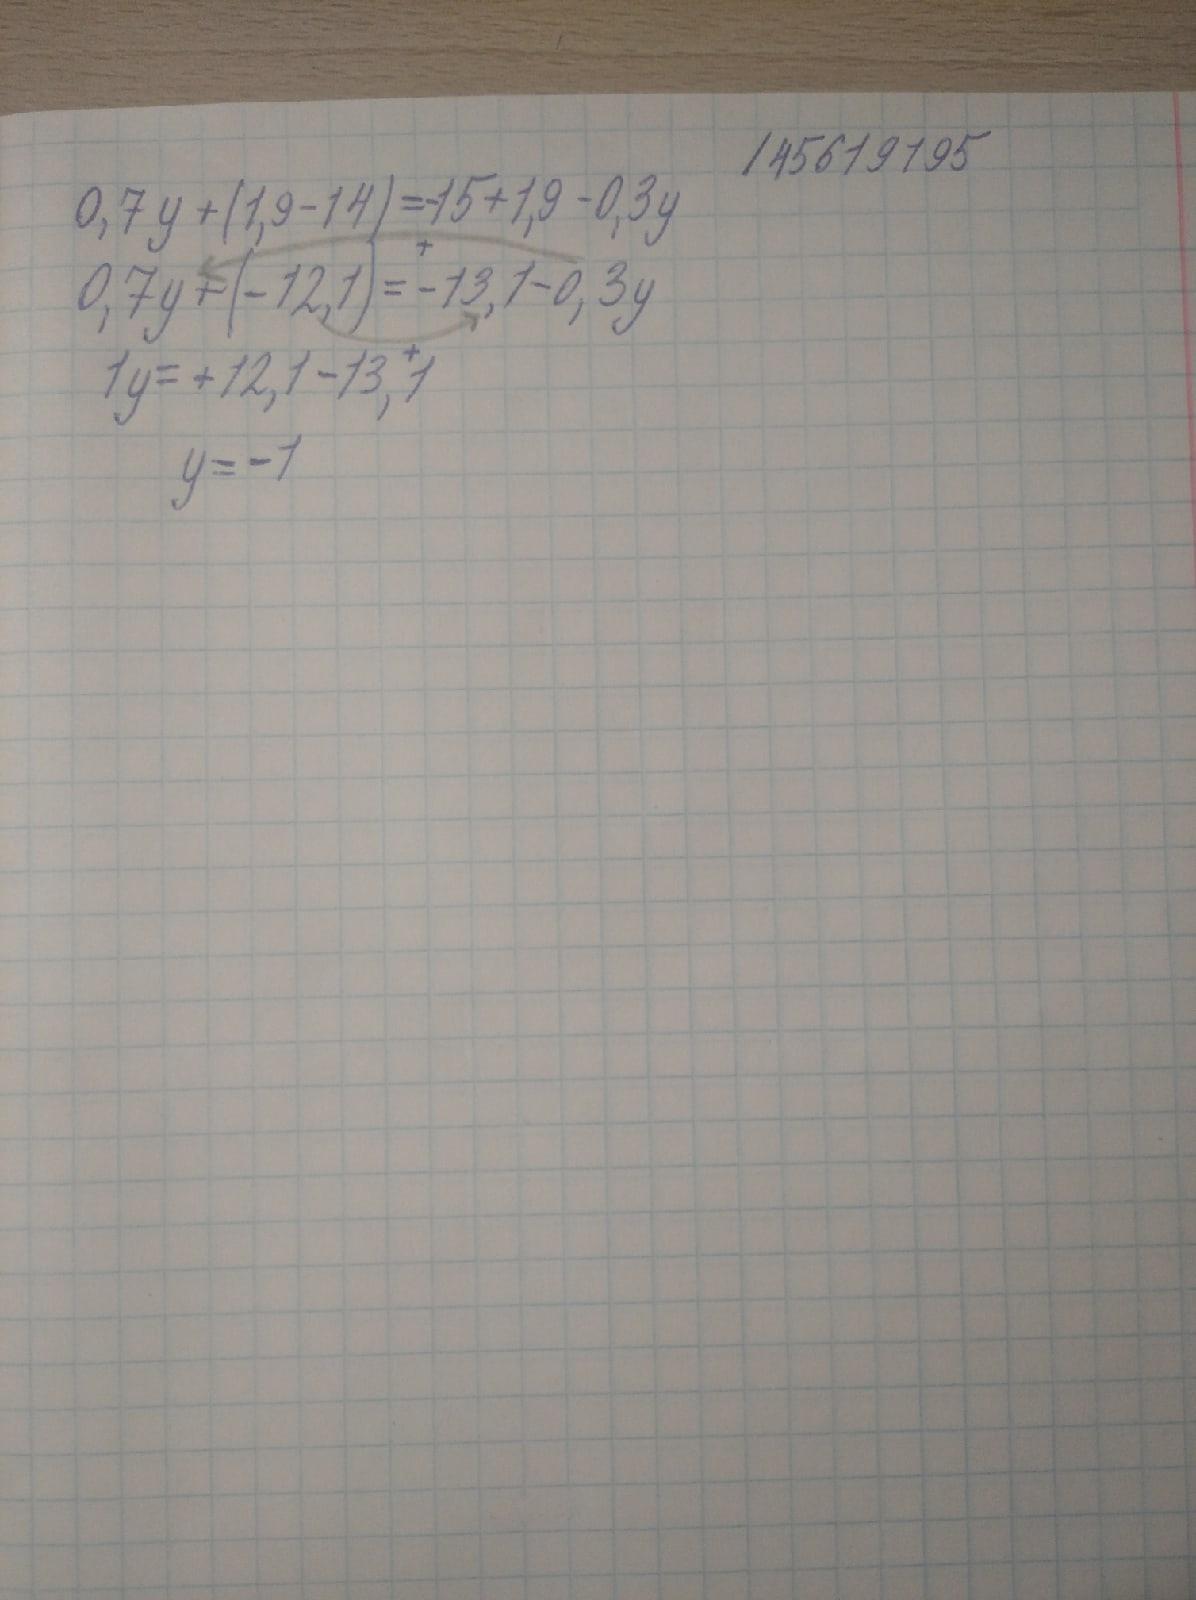 145619195
0,7y+(1,9-14)=-15+1,9-0,3y
+
0,7y+(-12,1)=-13,1-0,3y
+
1y=+12,1-13,1
y=-1